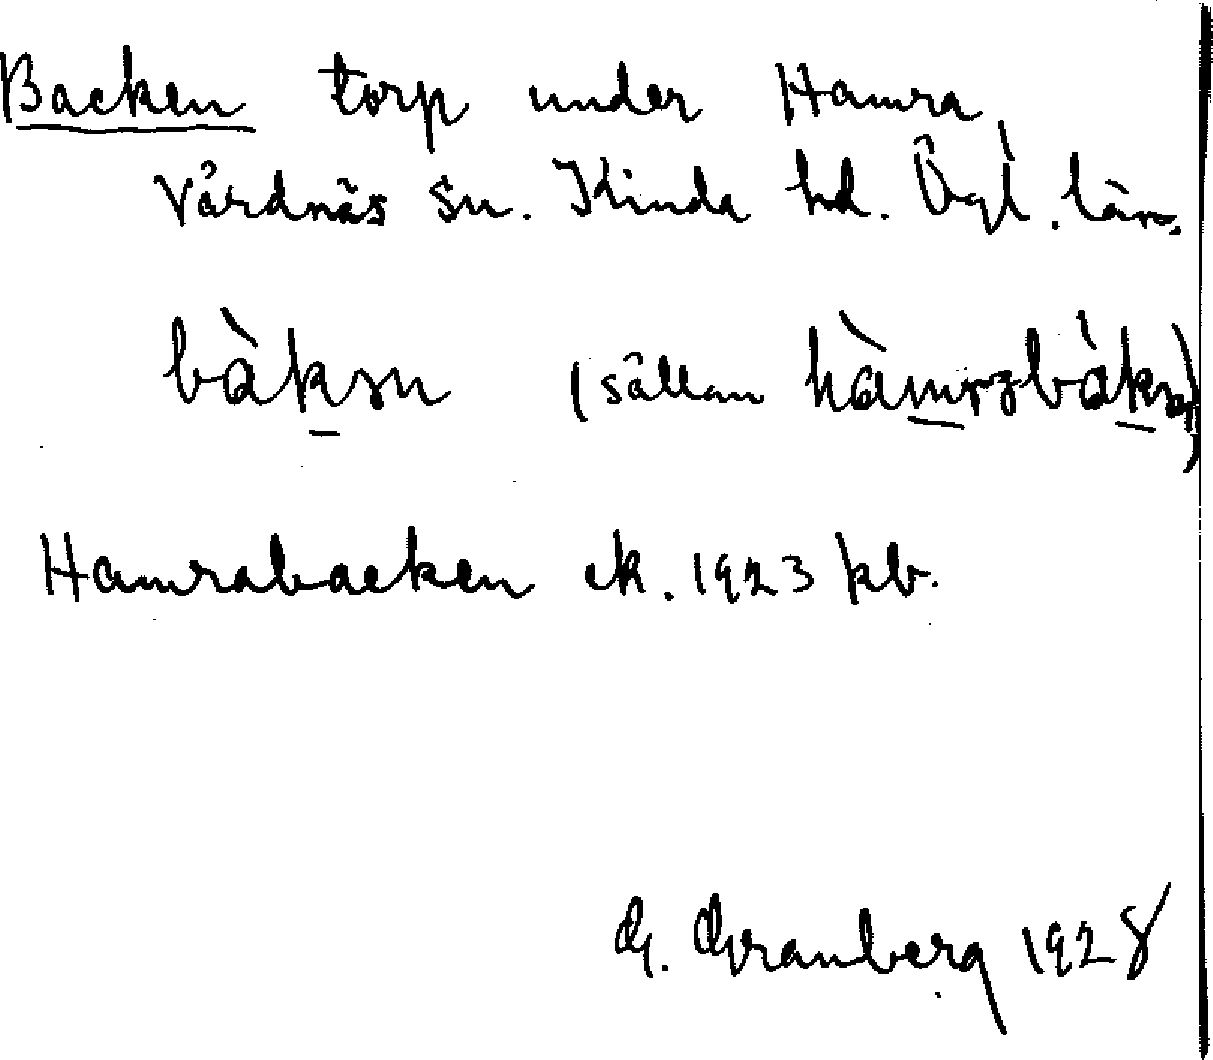 Backen torp under Hamra,
Vårdnäs sn. Kinda hd. Ögl. län.
bàkən (sällan hàmrəbákən)
Hamrabacken ek. 1923 kb.
G. Granberg 1928